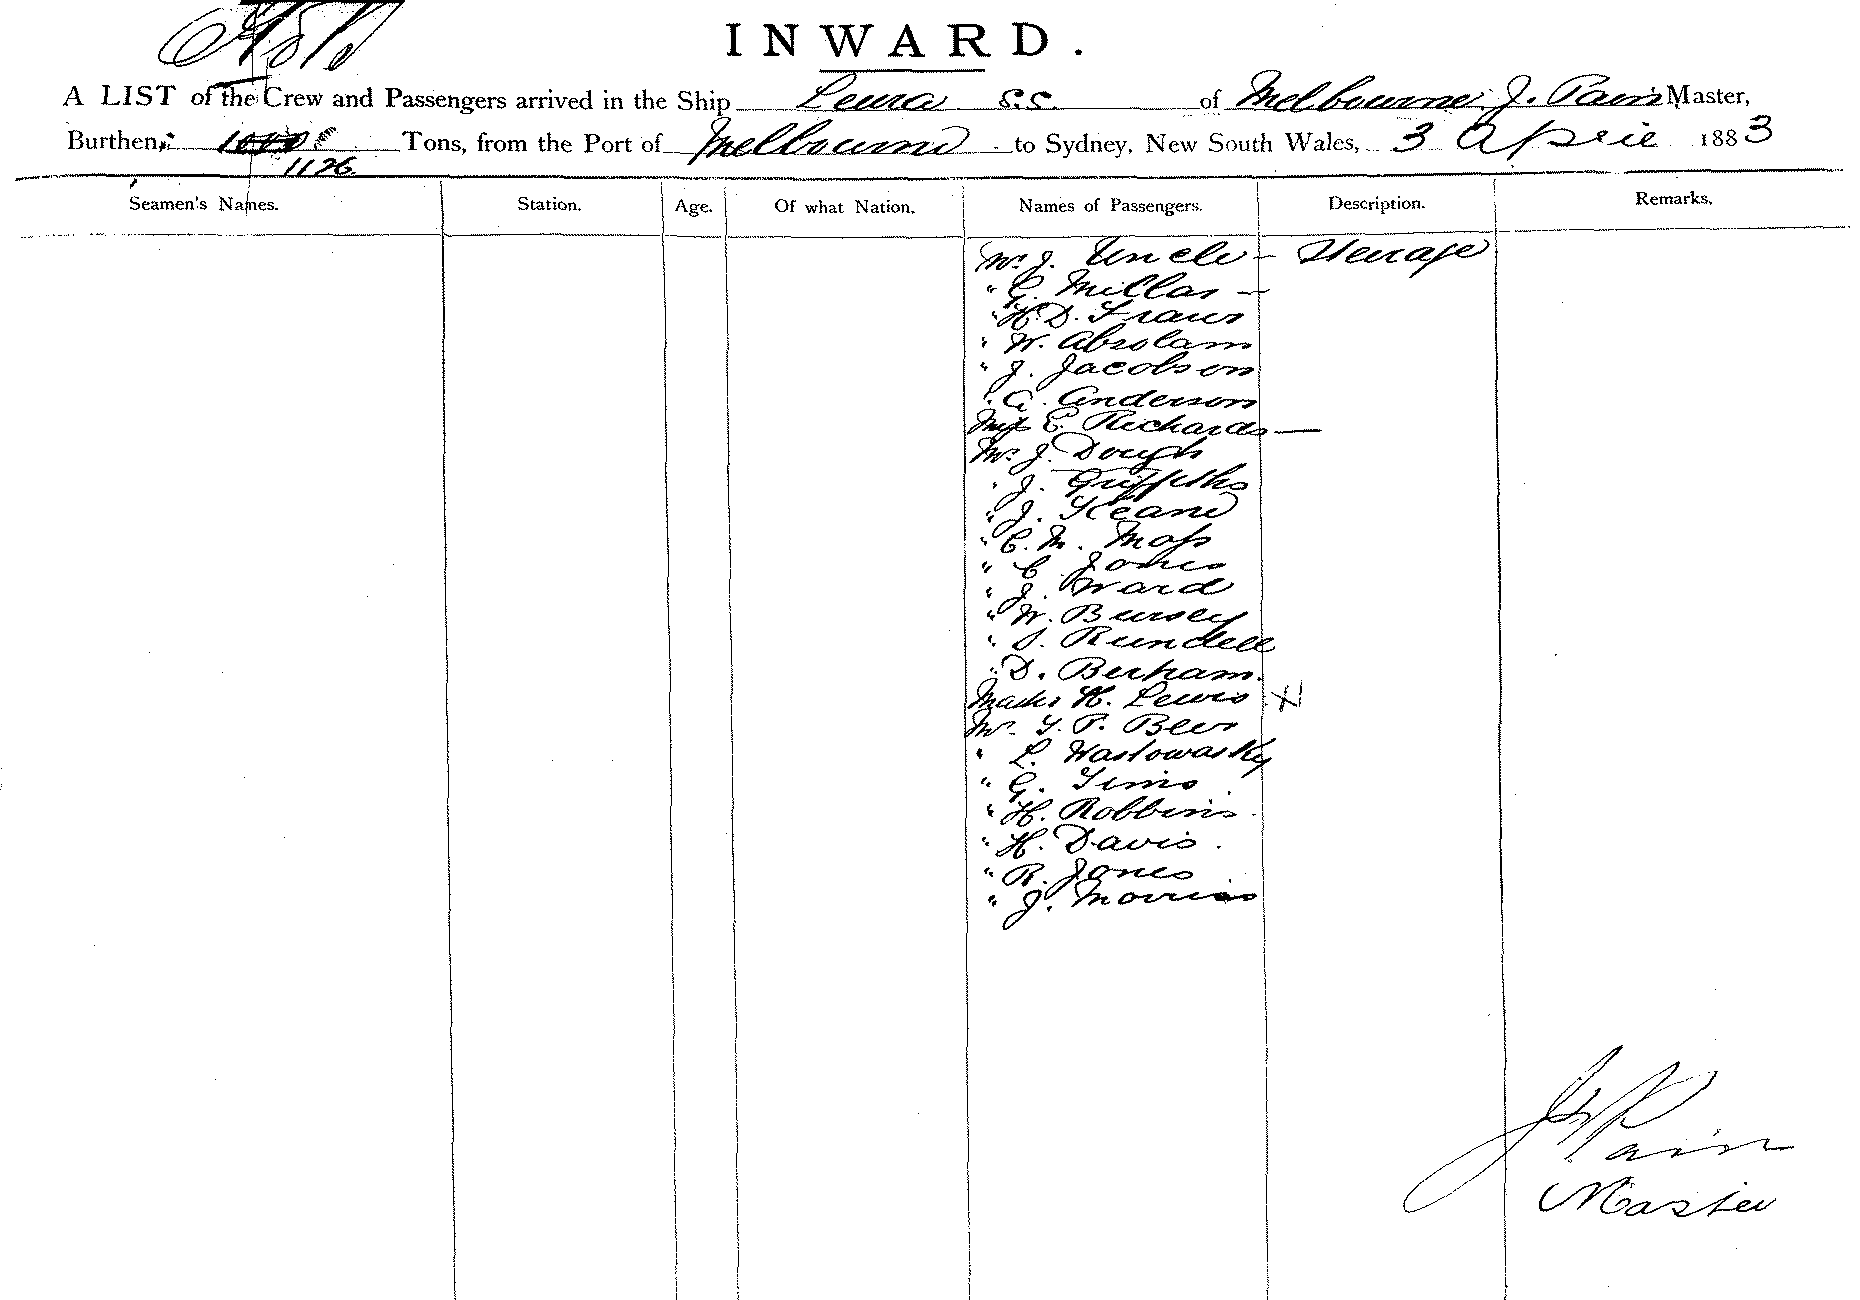 INWARD.
A LIST of the Crew and Passengers arrived in the Ship Leura S.S. of Melbourne J. Pain Master,
Burthen, 1126 Tons, from the Port of Melbourne to Sydney, New South Wales, 3 April 1883
Seamen's Names. Station. Age. Of what Nation. Names of Passengers. Description. Remarks.
Mr. J. Uncle - Steerage
" G. Millar -
" H. D. Fraus
" W. Absolam
" J. Jacobson
" A. Anderson
Miss E. Richards -
Mr. J. Dough
" J. Griffiths
" J. Keane
" C. M. Moss
" C. Jones
" J. Ward
" W. Bursey
" S. Rundell
" D. Berham.
Master H. Lewis X
Mr. T. P. Beer
" L. Wastowasky
" G. Sims
" H. Robbins
" H. Davis.
" R. Jones
" J. Morriss
J Pain
Master